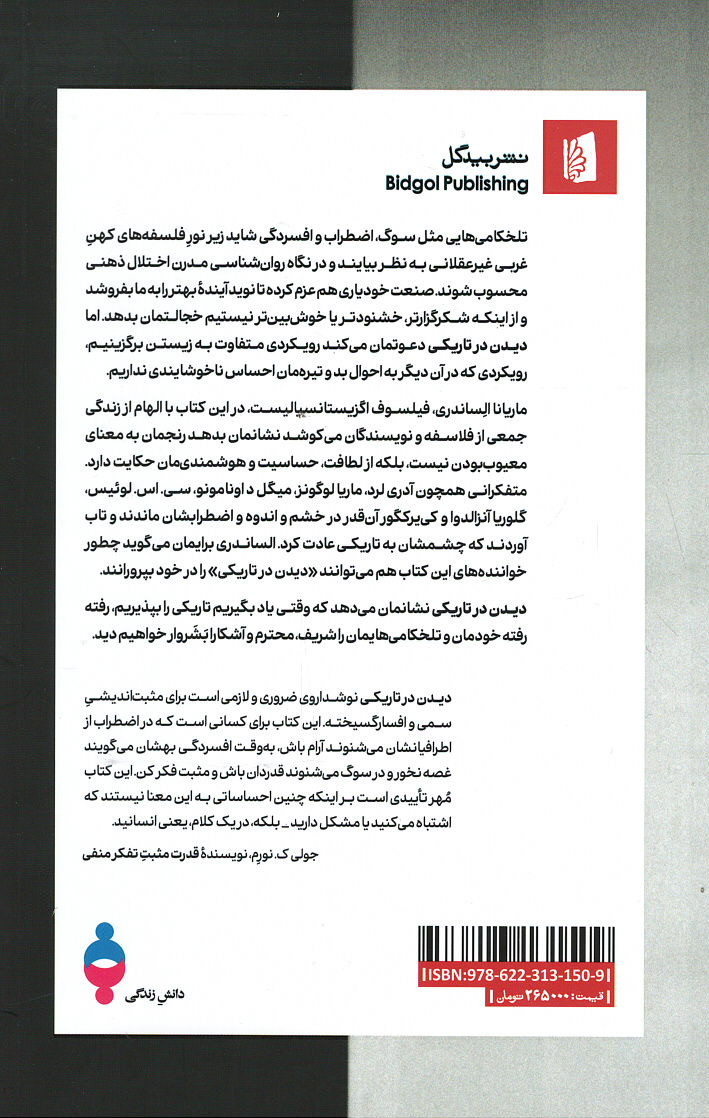 نشر بیدگل
Bidgol Publishing
تلخکامی‌هایی مثل سوگ، اضطراب و افسردگی شاید زیر نورِ فلسفه‌های کهنِ
غربی غیرعقلانی به نظر بیایند و در نگاه روان‌شناسی مدرن اختلال ذهنی
محسوب شوند. صنعت خودیاری هم عزم کرده تا نوید آیندهٔ بهتر را به ما بفروشد
و از اینکه شکرگزارتر، خشنودتر یا خوش‌بین‌تر نیستیم خجالتمان بدهد. اما
دیدن در تاریکی دعوتمان می‌کند رویکردی متفاوت به زیستن برگزینیم،
رویکردی که در آن دیگر به احوال بد و تیره‌مان احساس ناخوشایندی نداریم.
ماریانا الِساندری، فیلسوف اگزیستانسیالیست، در این کتاب با الهام از زندگی
جمعی از فلاسفه و نویسندگان می‌کوشد نشانمان بدهد رنجمان به معنای
معیوب‌بودن نیست، بلکه از لطافت، حساسیت و هوشمندی‌مان حکایت دارد.
متفکرانی همچون آدری لُرد، ماریا لوگونز، میگل د اونامونو، سی. اس. لوئیس،
گلوریا آنزالدوا و کی‌یرکگور آن‌قدر در خشم و اندوه و اضطرابشان ماندند و تاب
آوردند که چشمشان به تاریکی عادت کرد. الساندری برایمان می‌گوید چطور
خواننده‌های این کتاب هم می‌توانند «دیدن در تاریکی» را در خود بپرورانند.
دیدن در تاریکی نشانمان می‌دهد که وقتی یاد بگیریم تاریکی را بپذیریم، رفته
رفته خودمان و تلخکامی‌هایمان را شریف، محترم و آشکارا بَشَروار خواهیم دید.
دیدن در تاریکی نوشداروی ضروری و لازمی است برای مثبت‌اندیشیِ
سمی و افسارگسیخته. این کتاب برای کسانی است که در اضطراب از
اطرافیانشان می‌شنوند آرام باش، به‌وقت افسردگی بهشان می‌گویند
غصه نخور و در سوگ می‌شنوند قدردان باش و مثبت فکر کن. این کتاب
مُهر تأییدی است بر اینکه چنین احساساتی به این معنا نیستند که
اشتباه می‌کنید یا مشکل دارید _ بلکه، در یک کلام، یعنی انسانید.
جولی ک. نورِم، نویسندهٔ قدرت مثبتِ تفکر منفی
ISBN:978-622-313-150-9
قیمت: ۲۶۵۰۰۰ تومان
دانشِ زندگی